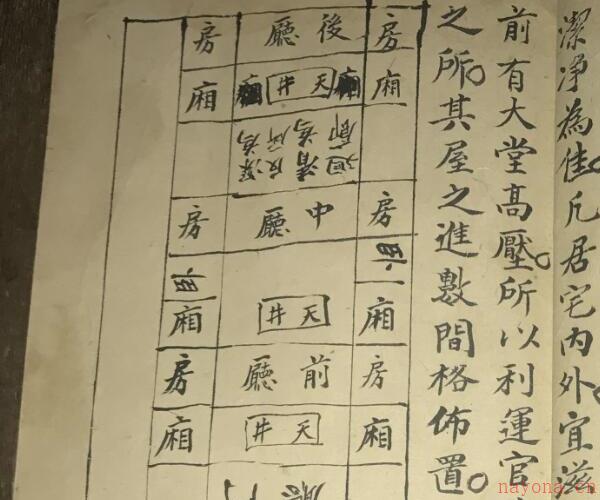 潔淨為佳。凡居宅內外。宜滋
前有大堂高壓。所以利運官
之所。其屋之進數間格佈置。
房 後廳 房
廂 廂 天井 廂 廂
房 中廳 房
廂 天井 廂
房 前廳 房
廂 天井 廂
nayona.cn